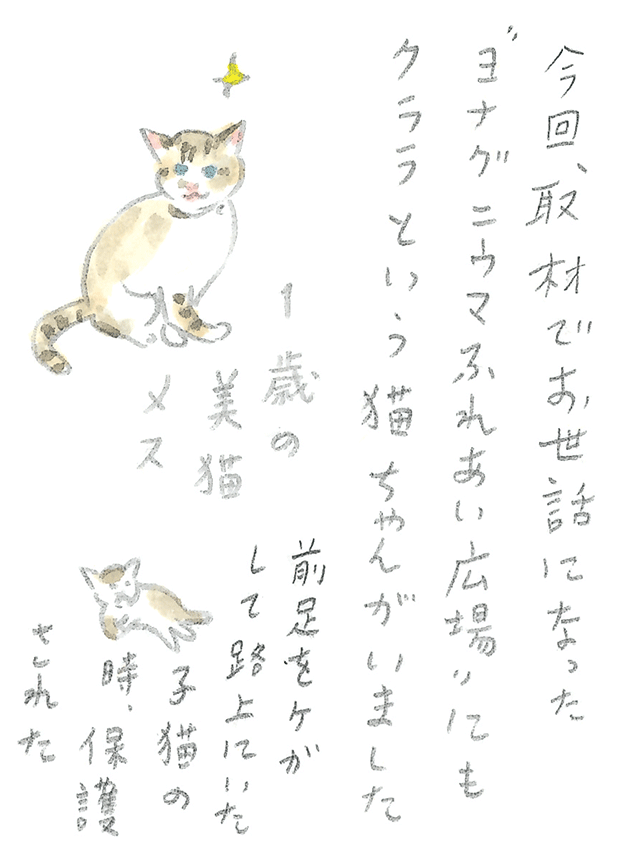 今回、取材でお世話になった
“ヨナグニウマふれあい広場”にも
クララという猫ちゃんがいました
1歳の
美猫
メス
前足をケガ
して路上にいた
子猫の
時、保護
された